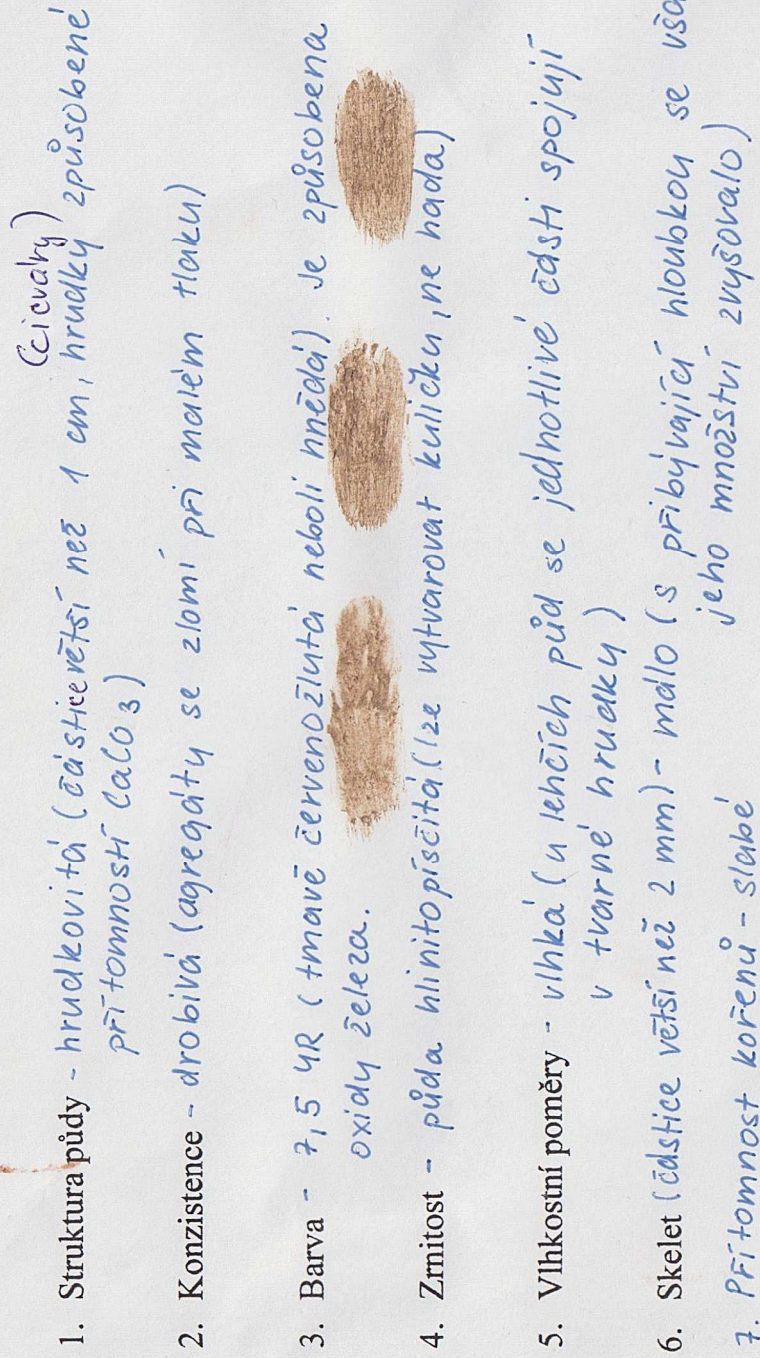 (cicváry)
1. Struktura půdy - hrudkovitá (částice větší než 1 cm, hrudky způsobené
přítomností CaCO3)
2. Konzistence - drobivá (agregáty se zlomí při malém tlaku)
3. Barva - 7,5 YR (tmavě červenožlutá neboli hnědá). Je způsobena
oxidy železa.
4. Zrnitost - půda hlinitopísčitá (lze vytvarovat kuličku, ne hada)
5. Vlhkostní poměry - vlhká (u lehčích půd se jednotlivé části spojují
v tvárné hrudky)
6. Skelet (částice větší než 2 mm) - málo (s přibývající hloubkou se vša
jeho množství zvyšovalo)
7. Přítomnost kořenů - slabé